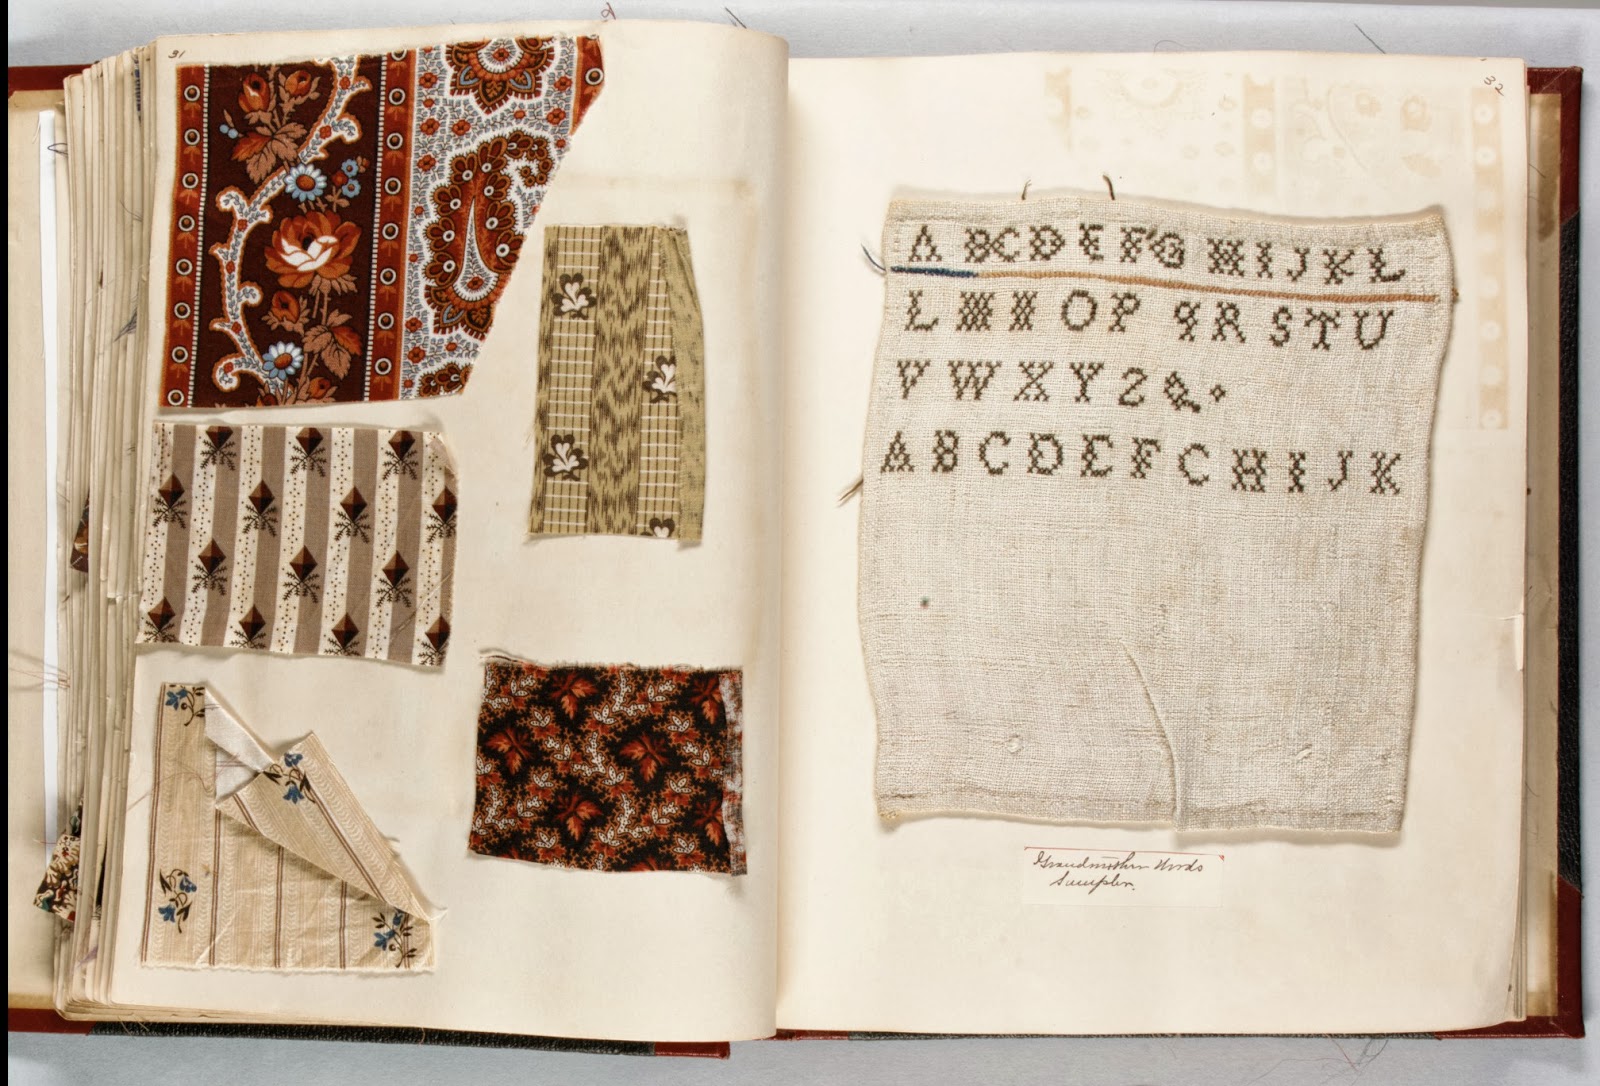 31
32
A B C D E F G H I J K L
L M N O P q R S T U
V W X Y Z & .
A B C D E F C H I J K
Grandmother Words
Sampler.